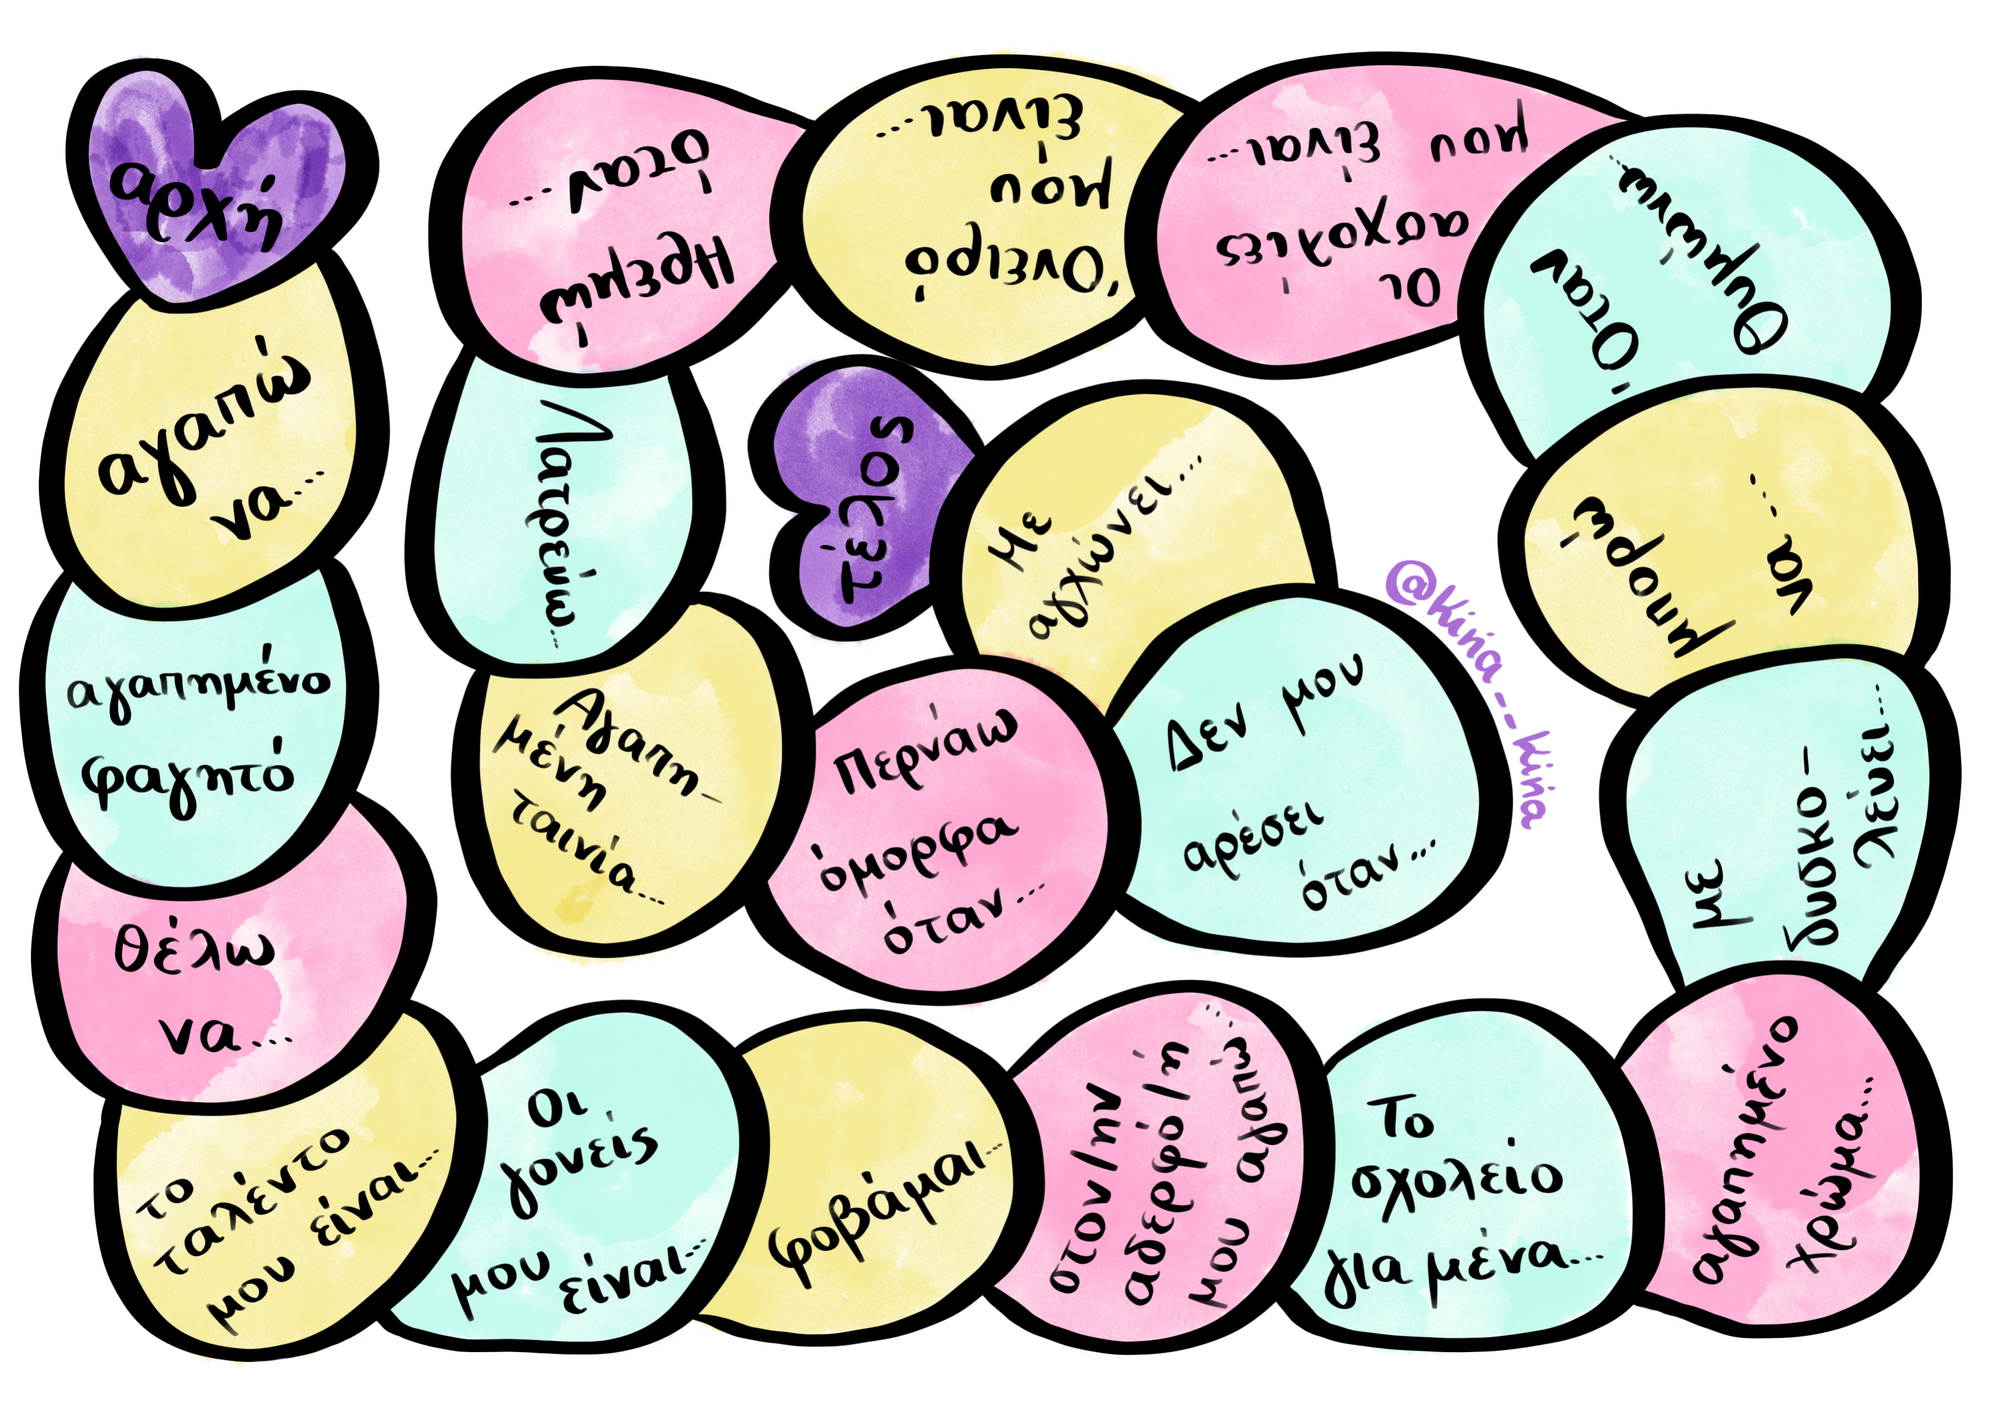 αρχή
αγαπώ
να...
αγαπημένο
φαγητό
θέλω
να...
το
ταλέντο
μου είναι...
Οι
γονείς
μου
είναι...
φοβάμαι...
στον/ην
αδερφό/ή
μου αγαπώ...
Το
σχολείο
για μένα...
αγαπημένο
χρώμα...
με
δυσκο-
λέυει...
μπορώ
να...
Όταν
θυμώνω...
Οι
ασχολίες
μου είναι...
Όνειρό
μου
είναι...
Ηρεμώ
όταν...
Λατρεύω...
Αγαπη-
μένη
ταινία...
Περνάω
όμορφα
όταν...
Δεν μου
αρέσει
όταν...
Με
αγχώνει...
τέλος
@kiria--kiria